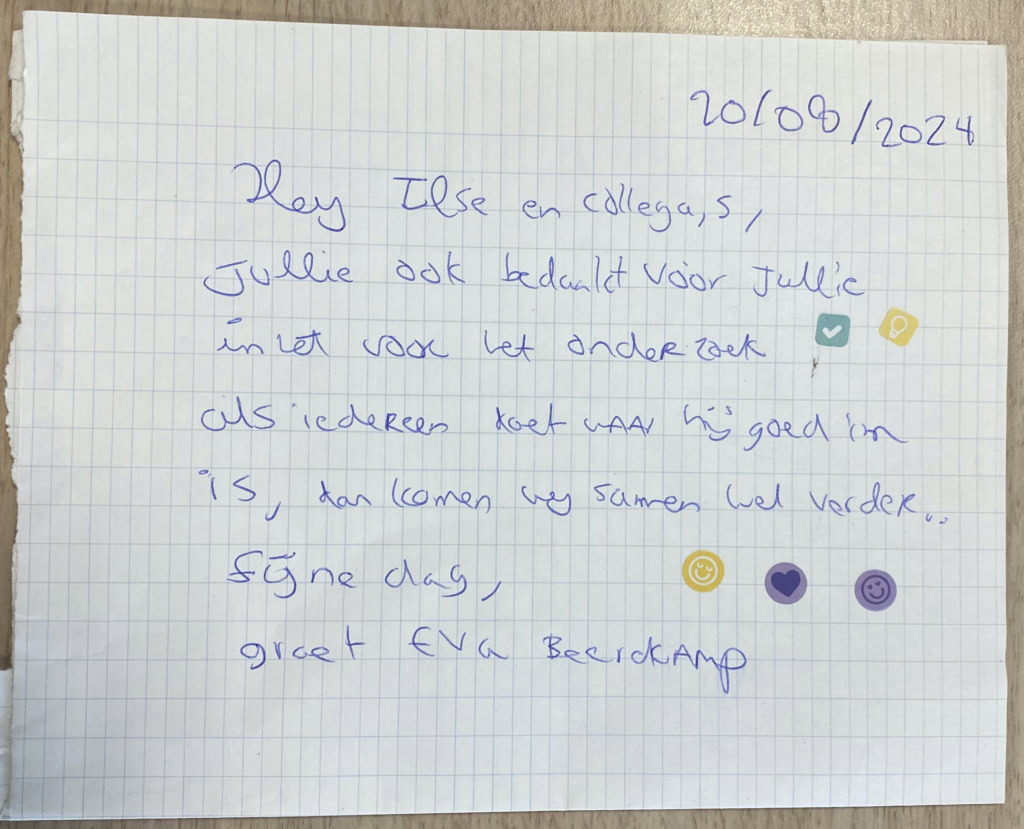 20/08/2024
Hey Ilse en collega,s,
Jullie ook bedankt voor Jullie
inzet voor het onderzoek
als iedereen doet waar hij goed in
is, dan komen wy samen wel verder..
fijne dag,
groet Eva BeerckAmp